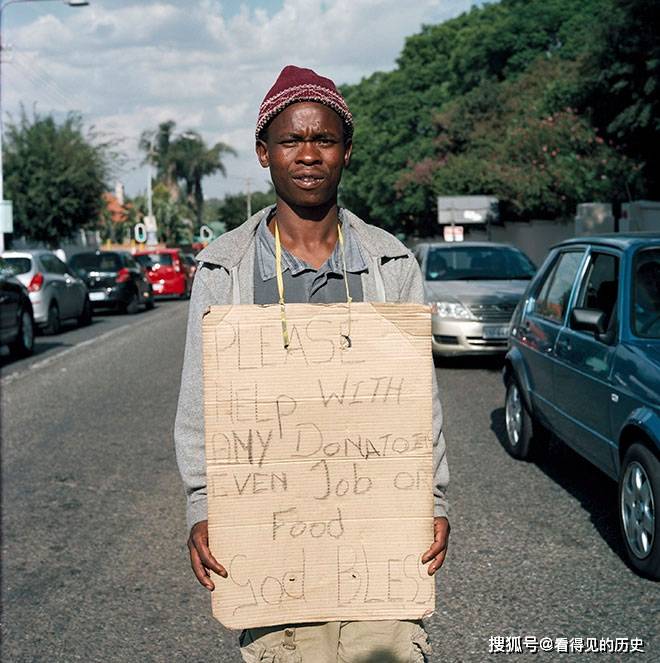 PLEASE
HELP WITH
ANY DONATOIN
EVEN Job OR
Food
God BLESS
搜狐号@看得见的历史